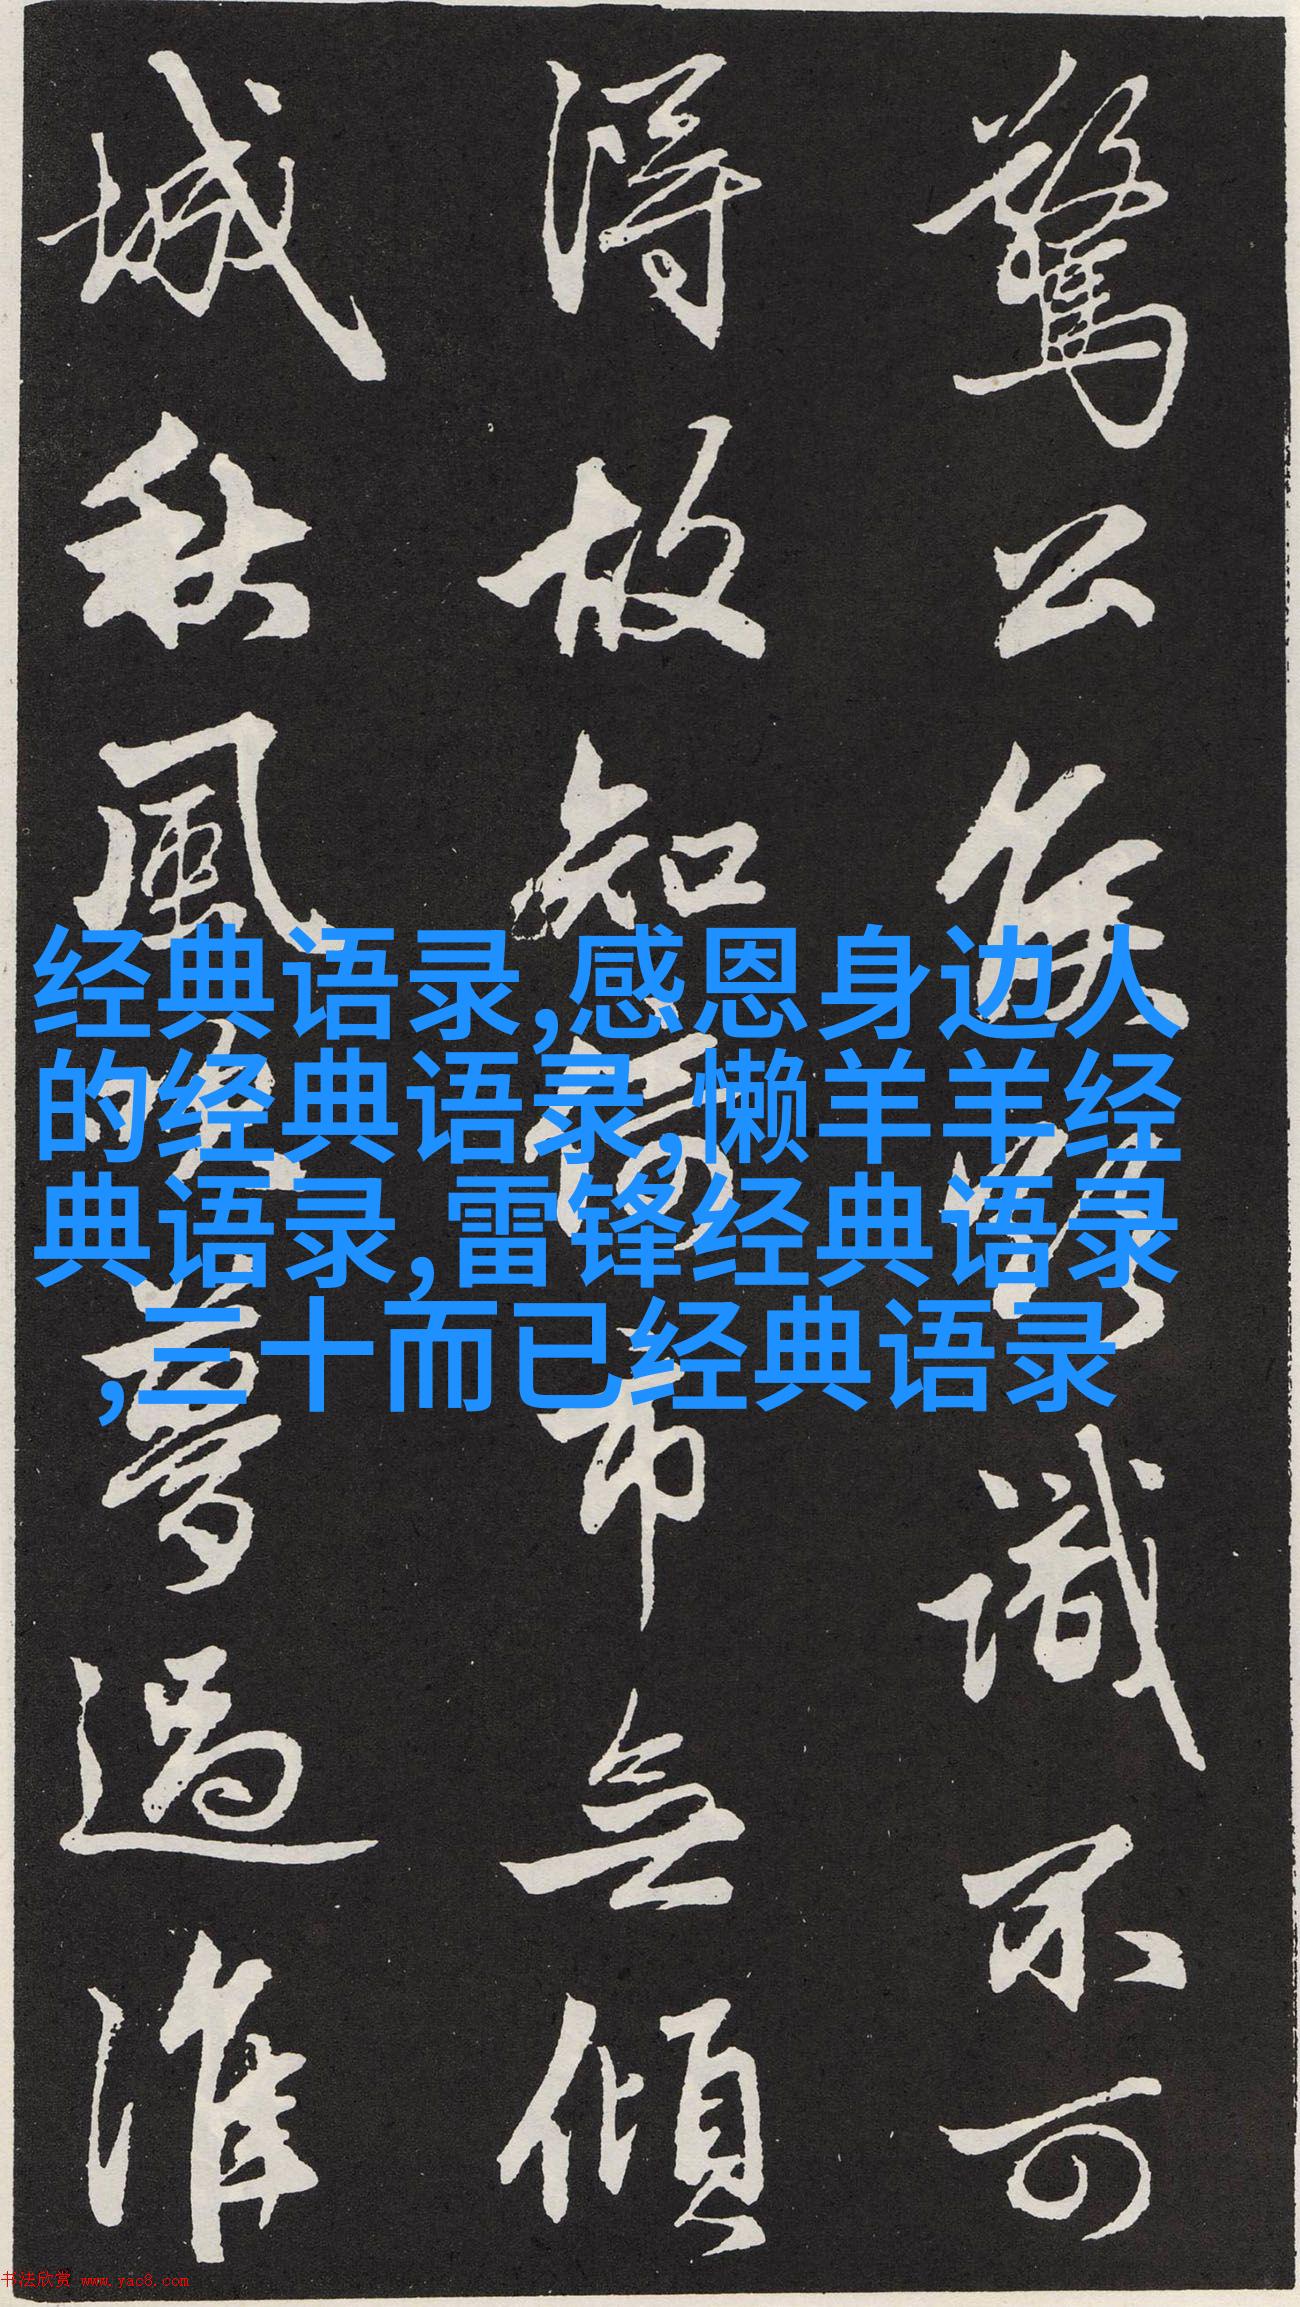 驚公侯
識不可
得故知
市無傾
城秋風
夢過淮
经典语录,感恩身边人
的经典语录,懒羊羊经
典语录,雷锋经典语录
,三十而已经典语录
书法欣赏 www.yac8.com